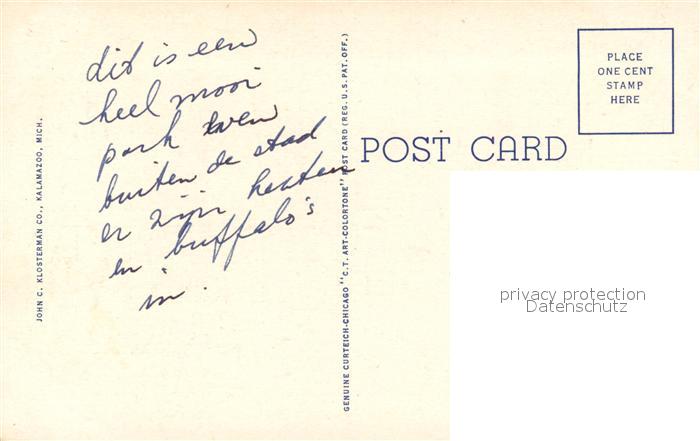 dit is een
heel mooi
park even
buiten de stad
er zijn herten
en buffalo's
in.
JOHN C. KLOSTERMAN CO., KALAMAZOO, MICH.
GENUINE CURTEICH-CHICAGO "C.T. ART-COLORTONE" POST CARD (REG. U.S. PAT. OFF.)
POST CARD
PLACE
ONE CENT
STAMP
HERE
privacy protection
Datenschutz